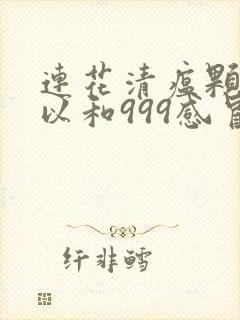 連花清瘟顆
以和999感冒
纤非鳕